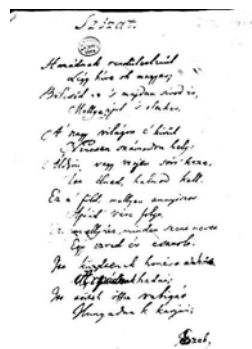 Szózat.
Hazádnak rendületlenűl
Légy híve oh magyar;
Bölcsőd ez 's majdan sírod is,
Melly ápol 's eltakar.
A' nagy világon e' kívül
Nincsen számodra hely;
Áldjon vagy verjen sors keze,
Itt élned, halnod kell.
Ez a' föld, mellyen annyiszor
Apáid vére folyt
Ez, mellyhez minden szent nevet
Egy ezred év csatolt.
Itt küzdtenek honért a'
hadai;
Itt törtek össze rabigát
Hunyadnak karjai;